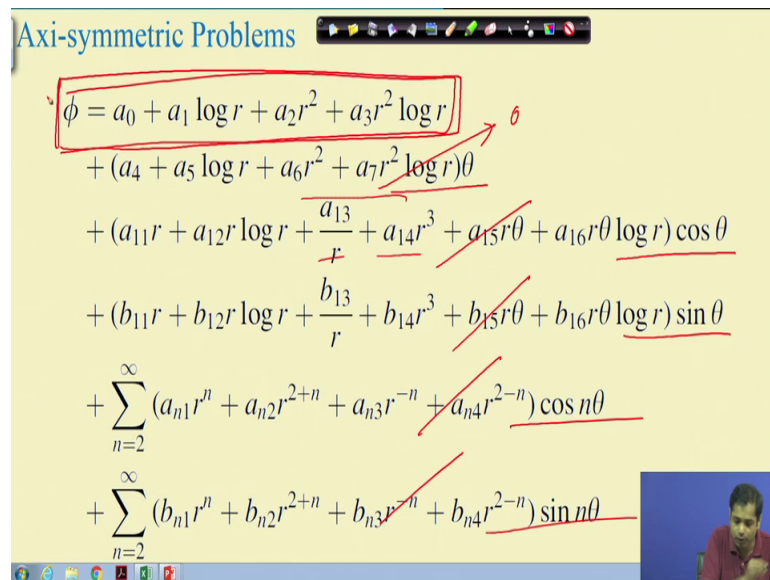 Axi-symmetric Problems
ϕ = a₀ + a₁ log r + a₂r² + a₃r² log r
+ (a₄ + a₅ log r + a₆r² + a₇r² log r)θ
0
+ (a₁₁r + a₁₂r log r + a₁₃/r + a₁₄r³ + a₁₅rθ + a₁₆rθ log r) cos θ
+ (b₁₁r + b₁₂r log r + b₁₃/r + b₁₄r³ + b₁₅rθ + b₁₆rθ log r) sin θ
+ ∑_{n=2}^{∞} (aₙ₁rⁿ + aₙ₂r²⁺ⁿ + aₙ₃r⁻ⁿ + aₙ₄r²⁻ⁿ) cos nθ
+ ∑_{n=2}^{∞} (bₙ₁rⁿ + bₙ₂r²⁺ⁿ + bₙ₃r⁻ⁿ + bₙ₄r²⁻ⁿ) sin nθ